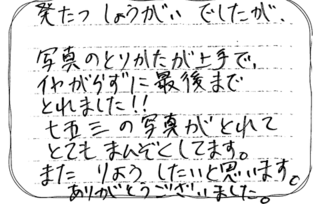 発たつ しょうがい でしたが、
写真のとりかたが上手で、
イヤがらずに最後まで
とれました!!
七五三の写真がとれて
とてもまんぞくしてます。
また りようしたいと思います。
ありがとうございました。